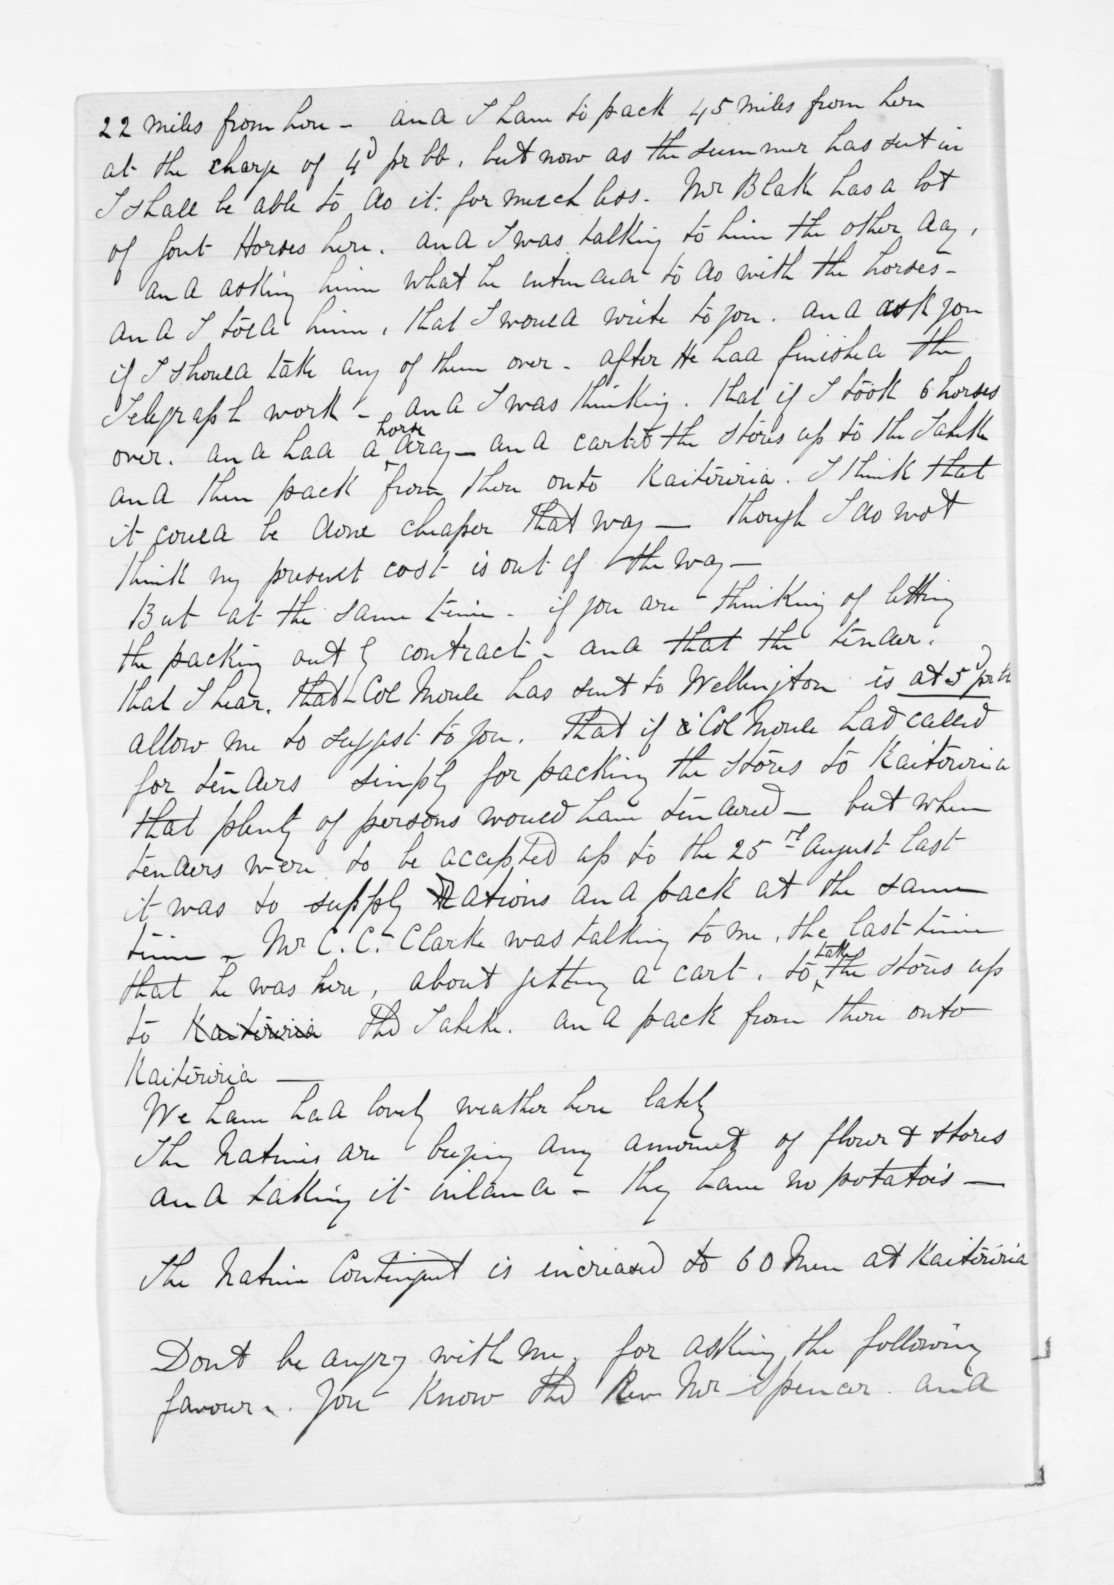 22 miles from here - and I have to pack 45 miles from here
at the charge of 4d pr lb, but now as the summer has set in
I shall be able to do it for much less. Mr Blake has a lot
of Govt Horses here. and I was talking to him the other day,
and asking him what he intended to do with the horses -
and I told him, that I would write to you. and ask you
if I should take any of them over - after He had finished the
Telegraph work - and I was thinking. that if I took 6 horses
over. and had a horse dray - and carted the stores up to the Taheke
and then pack from there onto Kaiteriria. I think that
it could be done cheaper that way — though I do not
think my present cost is out of the way -
But at the same time - if you are thinking of letting
the packing out by contract - and that the tender.
that I hear. that Col Moule has sent to Wellington is at 5d pr lb
allow me to suggest to you. That if Col Moule had called
for tenders simply for packing the stores to Kaiteriria
that plenty of persons would have tendered - but when
tenders were to be accepted up to the 25rd August last
it was to supply Rations and pack at the same
time - Mr C. C. Clarke was talking to me, the last time
that he was here, about getting a cart. to take the stores up
to Kaiteriria The Taheke. and pack from there onto
Kaiteriria —
We have had lovely weather here lately
The Natives are buying any amount of flour & stores
and taking it inland - they have no potatois —
The Native Contingent is increased to 60 Men at Kaiteriria
Dont be angry with me, for asking the following
favour. You know the Rev Mr Spencer. and